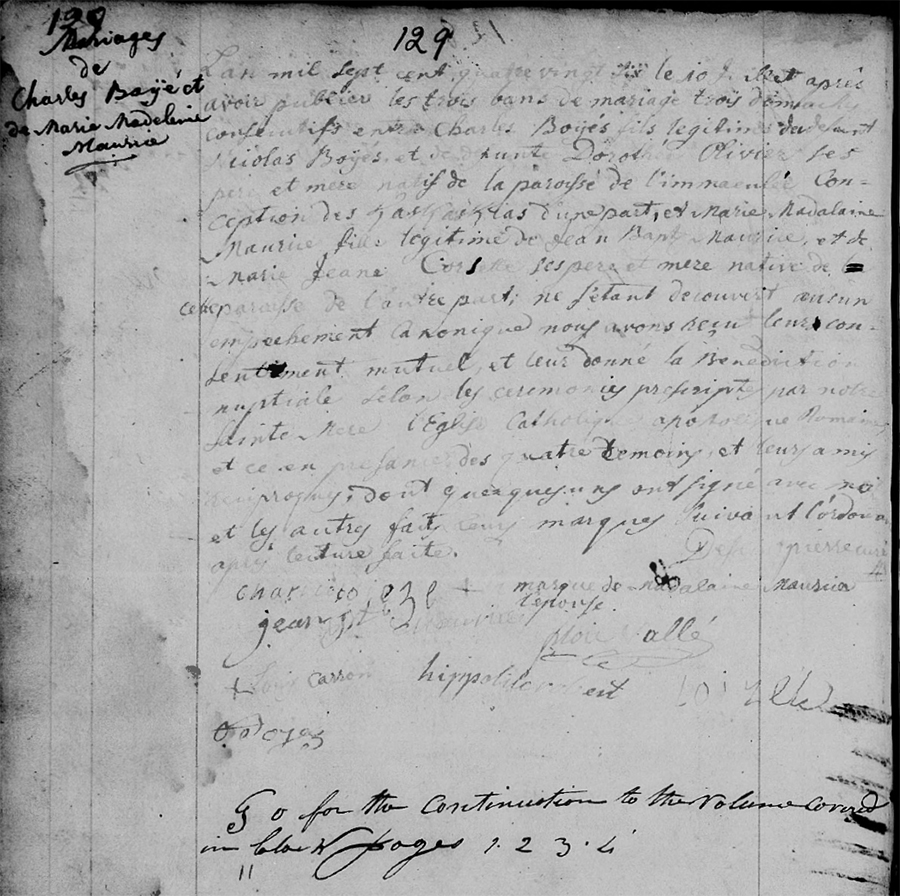 129
Mariages
de
Charles Bayé et
de Marie Madeleine
Maurice
129
L'an mil sept cent quatre vingt dix le 10 Juillet après
avoir publier les trois bans de mariage trois dimanches
consecutifs entre Charles Boyés fils legitime de defunt
Nicolas Boyés, et de defunte Dorothée Olivier ses
pere et mere natif de la paroisse de l'immaculée Con-
ception des Kaskaskias d'une part, et Marie Madalaine
Maurice fille legitime de Jean Bapt Maurice, et de
Marie Jeane Corsette ses pere et mere native de
cette paroisse de l'autre part; ne s'étant decouvert aucun
empechement Canonique nous avons reçu leur con-
sentement mutuel, et leur donné la Benediction
nuptiale selon les ceremonies prescriptes par notre
sainte Mere l'Eglise Catholique apostolique Romaine
et ce en presance des quatre temoins, et leurs amis
reciproques, dont quesques uns ont signé avec moi
et les autres fait leurs marques suivant l'ordon
après lecture faite.
pierre curé
charle
marque de Madalaine Maurice
l'epouse.
jean Bt
Vallé
+ Louis Carron
hippolite
Boyes
Go for the Continuation to the Volume Covered
in black pages 1. 2 3. 4